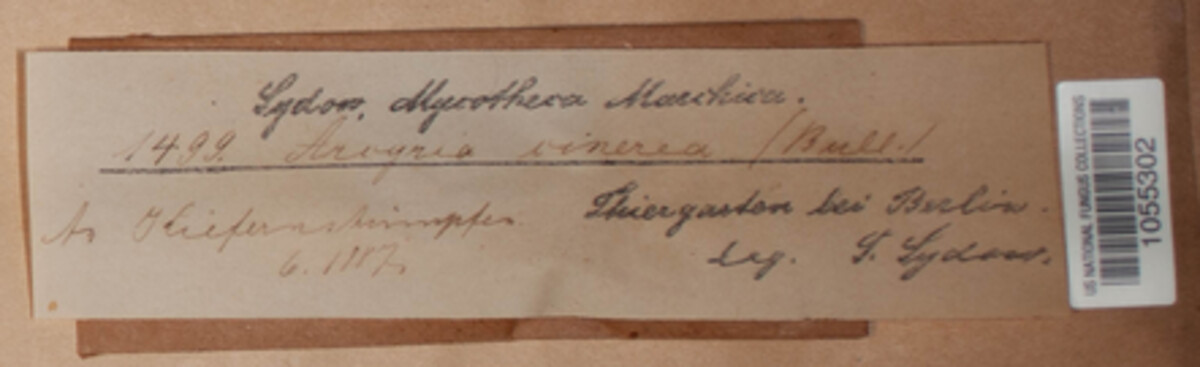 Sydow, Mycotheca Marchica.
1499. Arcyria cinerea (Bull.)
An Kiefernstümpfen.
6. 1887.
Thiergarten bei Berlin.
Leg. P. Sydow.
US NATIONAL FUNGUS COLLECTIONS
1055302